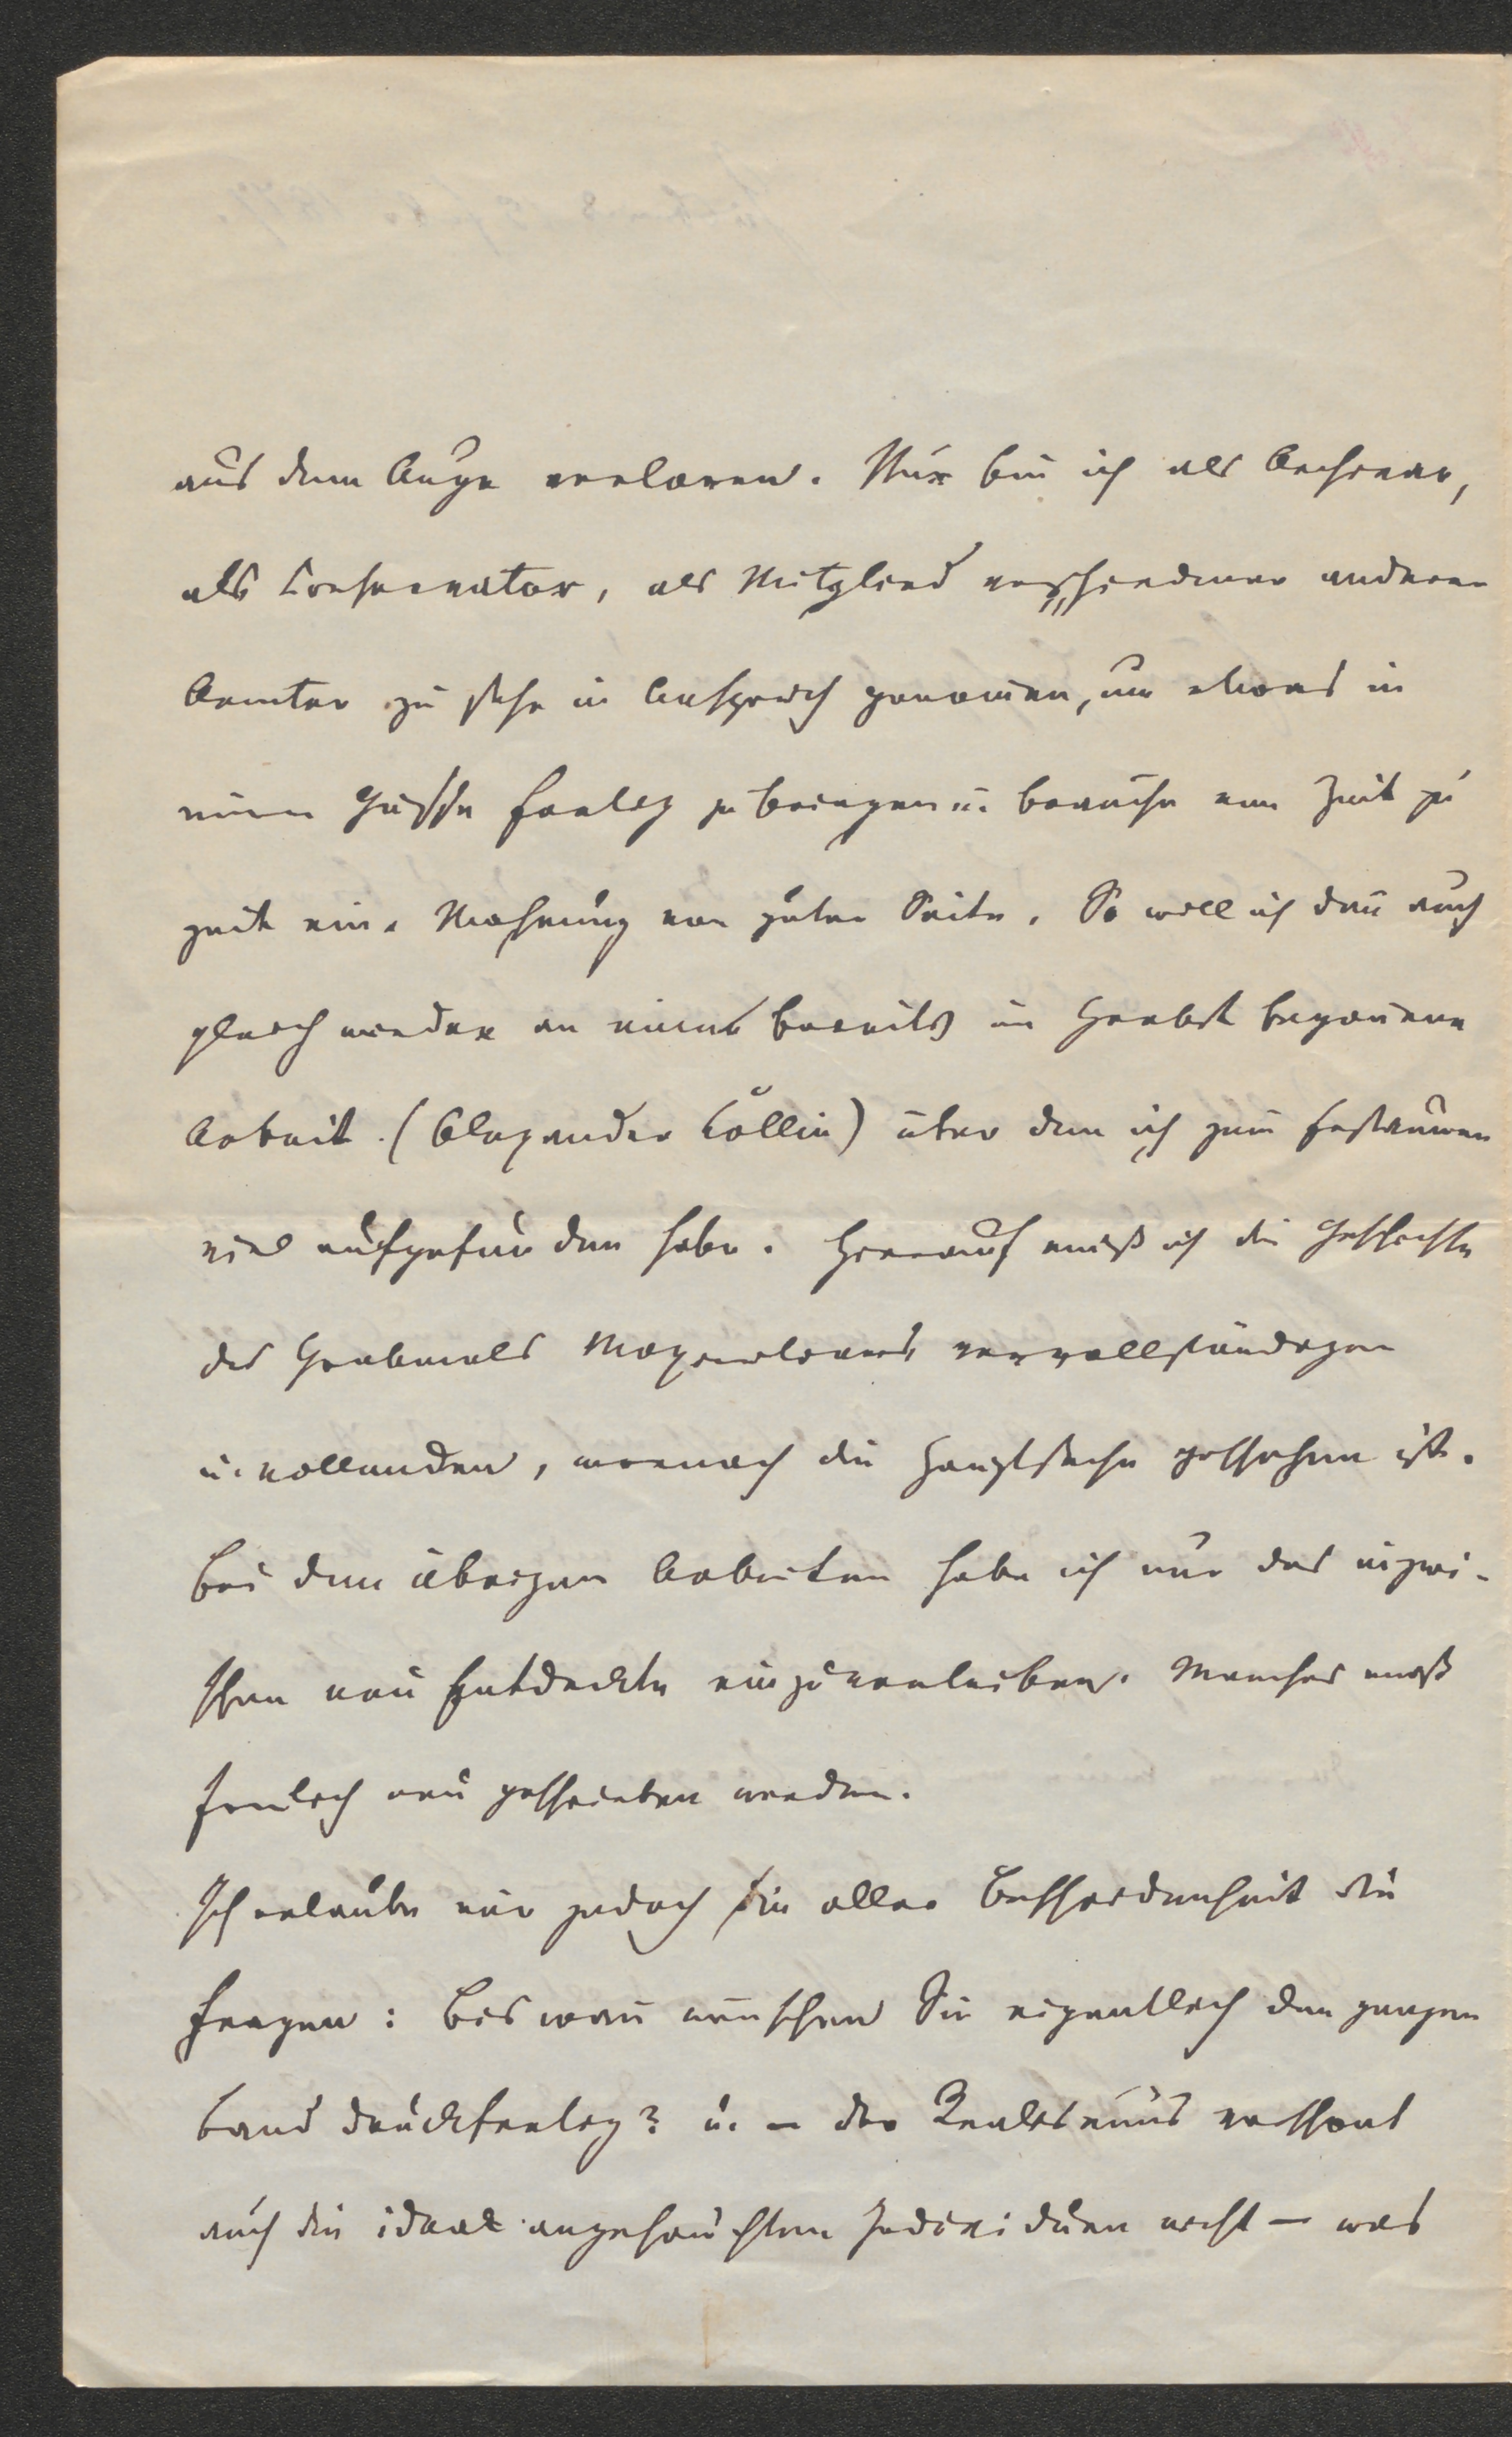 aus dem Auge verloren. Nur bin ich als Archivar,
als Conservator, als Mitglied verschiedener anderer
Aemter zu sehr in Anspruch genomen, um etwas in
einem Gusse fertig zu bringen u. brauche von Zeit zu
Zeit eine Mahnung von guter Seite. So will ich dan auch
gleich wieder an meine bereits im Herbst begonene
Arbeit (Alexander Collin) über den ich zum Erstaunen
viel aufgefunden habe. Hierauf muß ich die Geschichte
des Grabmals Maximilians vervollständigen
u. vollenden, wornach die Hauptsache geschehen ist.
Bei den übrigen Arbeiten habe ich nur das inzwi-
schen neu Entdeckte einzuverleiben. Manches muß
freilich neu geschrieben werden.
Ich erlaube mir jedoch in aller Bescheidenheit die
Fragen: Bis wan wünschen Sie eigentlich den ganzen
Band druckfertig? u. – der Realismus verschont
auch die ideal angehauchten Individuen nicht – was